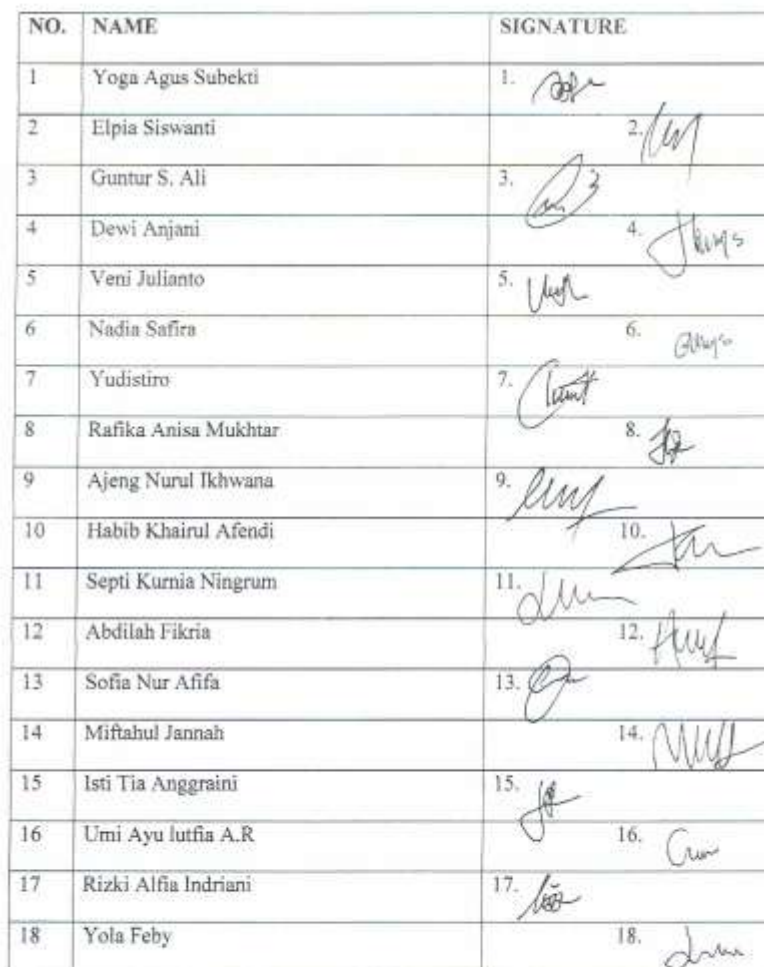 NO. NAME SIGNATURE
1 Yoga Agus Subekti 1.
2 Elpia Siswanti 2.
3 Guntur S. Ali 3.
4 Dewi Anjani 4.
5 Veni Julianto 5.
6 Nadia Safira 6.
7 Yudistiro 7.
8 Rafika Anisa Mukhtar 8.
9 Ajeng Nurul Ikhwana 9.
10 Habib Khairul Afendi 10.
11 Septi Kurnia Ningrum 11.
12 Abdilah Fikria 12.
13 Sofia Nur Afifa 13.
14 Miftahul Jannah 14.
15 Isti Tia Anggraini 15.
16 Umi Ayu lutfia A.R 16.
17 Rizki Alfia Indriani 17.
18 Yola Feby 18.